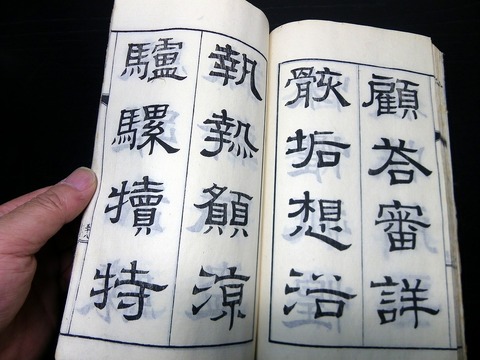 顧答審詳
骸垢想浴
執熱願涼
驢騾犢特